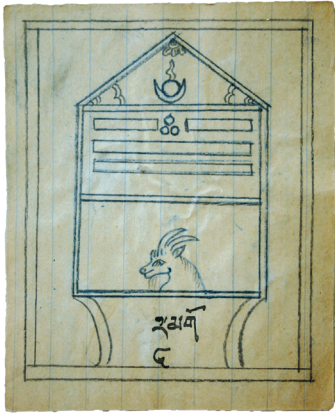 ར་མགོ
༤